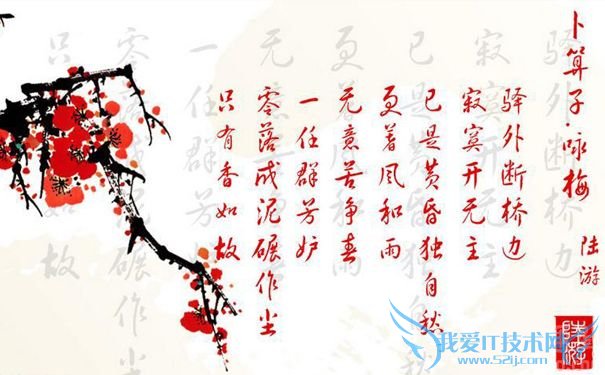 卜算子·咏梅
陆游
驿外断桥边
寂寞开无主
已是黄昏独自愁
更着风和雨
无意苦争春
一任群芳妒
零落成泥碾作尘
只有香如故
陆游
我爱IT技术网
www.52ij.com